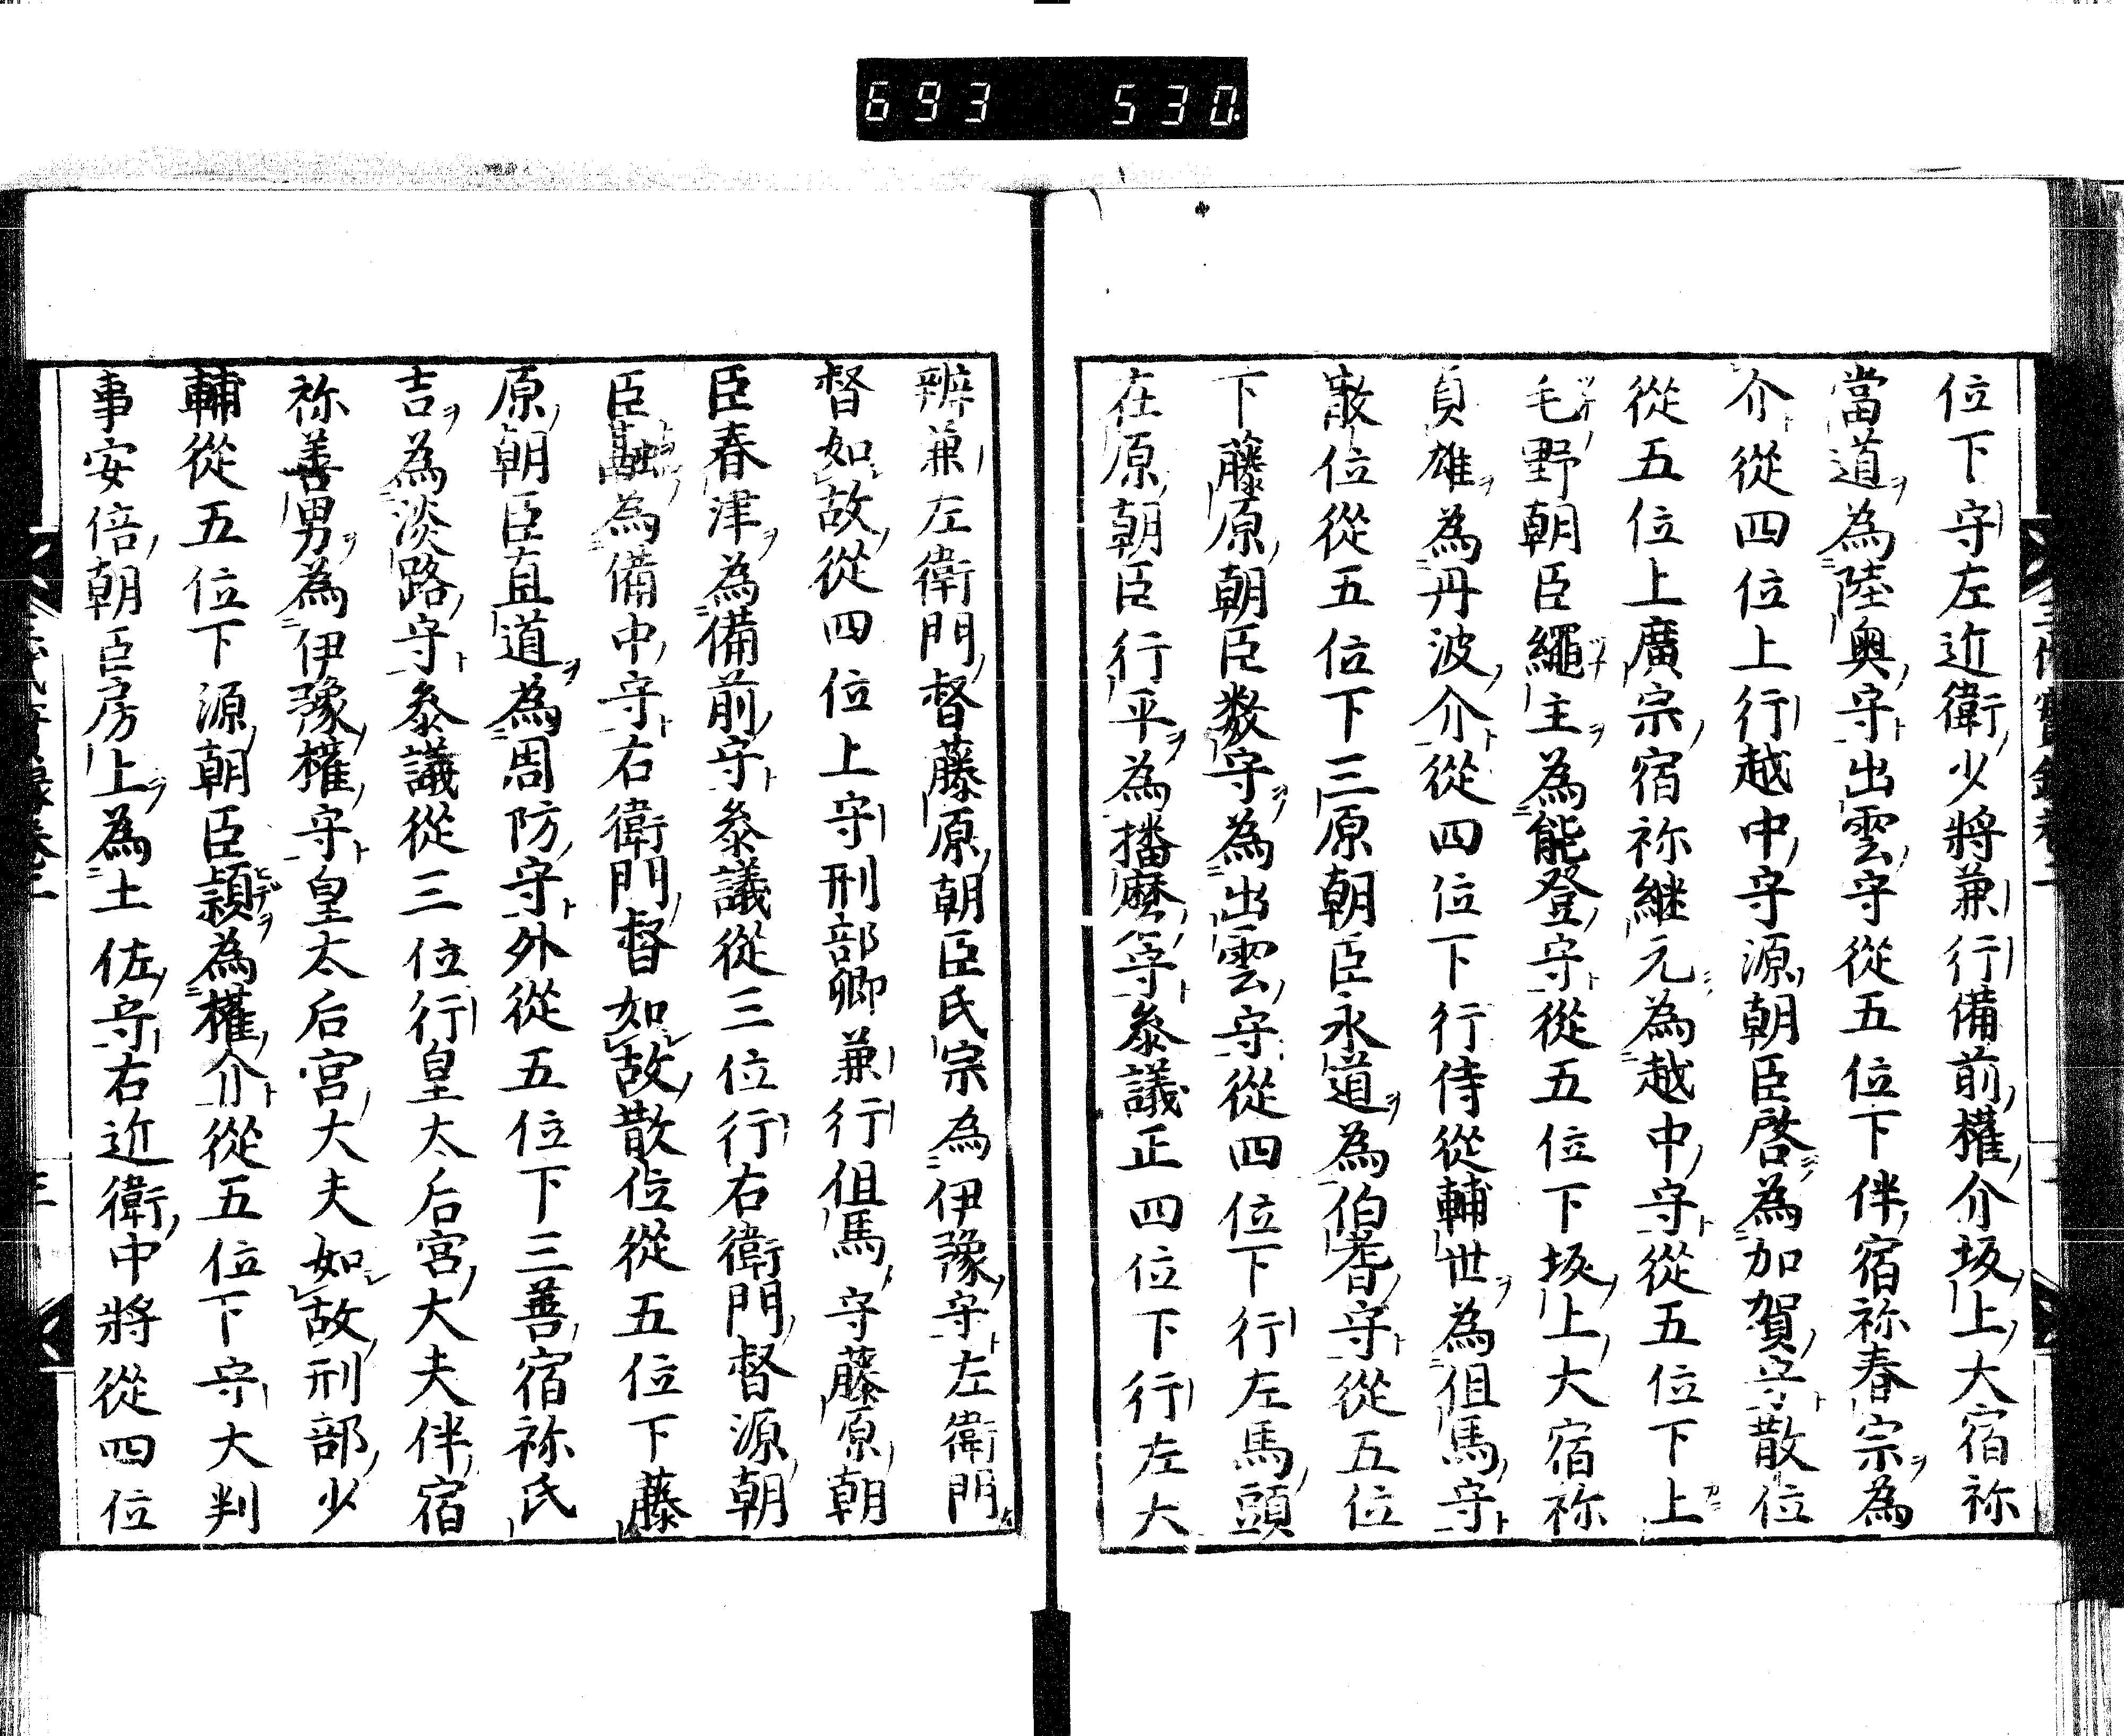 693 530
位下守左近衛少將兼行備前權介坂上大宿祢
當道為陸奥守出雲守從五位下伴宿祢春宗為
介從四位上行越中守源朝臣啓為加賀守散位
從五位上廣宗宿祢継元為越中守從五位下上
毛野朝臣繩主為能登守從五位下坂上大宿祢
貞雄為丹波介從四位下行侍從輔世為但馬守
散位從五位下三原朝臣永道為伯耆守從五位
下藤原朝臣数守為出雲守從四位下行左馬頭
在原朝臣行平為播磨守参議正四位下行左大
辨兼左衛門督藤原朝臣氏宗為伊豫守左衛門
督如故從四位上守刑部卿兼行但馬守藤原朝
臣春津為備前守参議從三位行右衛門督源朝
臣融為備中守右衛門督如故散位從五位下藤
原朝臣直道為周防守外從五位下三善宿祢氏
吉為淡路守参議從三位行皇太后宮大夫伴宿
祢善男為伊豫權守皇太后宮大夫如故刑部少
輔從五位下源朝臣頴為權介從五位下守大判
事安倍朝臣房上為土佐守右近衛中將從四位